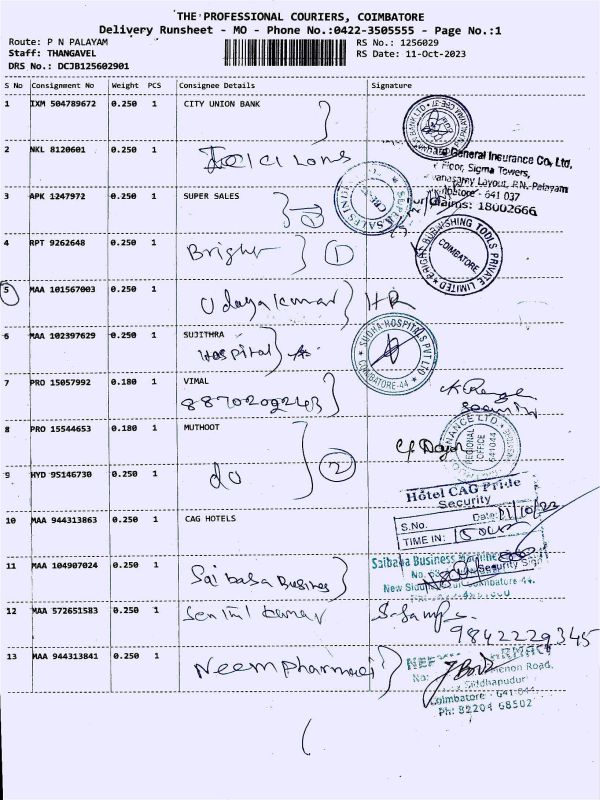 THE PROFESSIONAL COURIERS, COIMBATORE
Delivery Runsheet - MO - Phone No.:0422-3505555 - Page No.:1
Route: P N PALAYAM RS No.: 1256029
Staff: THANGAVEL RS Date: 11-Oct-2023
DRS No.: DCJB125602901
S No Consignment No Weight PCS Consignee Details Signature
1 IXM 504789672 0.250 1 CITY UNION BANK
2 NKL 8120601 0.250 1
General Insurance Co, Ltd,
Floor, Sigma Towers,
Layout, P.N. Palayam
641 037
3 APK 1247972 0.250 1 SUPER SALES
18002666
4 RPT 9262648 0.250 1 Bright 1
BRIGHT BURNISHING TOOLS PRIVATE LIMITED
COIMBATORE
5 MAA 101567003 0.250 1 Udayakumar HR
6 MAA 102397629 0.250 1 SUJITHRA
Hospital
SUDHA HOSPITALS PVT LTD
COIMBATORE-44
7 PRO 15057992 0.180 1 VIMAL
8870209243
Security
8 PRO 15544653 0.180 1 MUTHOOT
REGIONAL
OFFICE
641044
2
9 HYD 95146730 0.250 1 do
Hotel CAG Pride
Security
10 MAA 944313863 0.250 1 CAG HOTELS
S.No.
Date:
TIME IN:
Security Sign
11 MAA 104907024 0.250 1 Saibaba Business
Saibaba Business
No.
New
Coimbatore
12 MAA 572651583 0.250 1 Senthil kumar
9842229345
13 MAA 944313841 0.250 1 Neempharmaci
No:
Menon Road,
Siddhapudur
Coimbatore - 641 044
Ph: 82204 68502